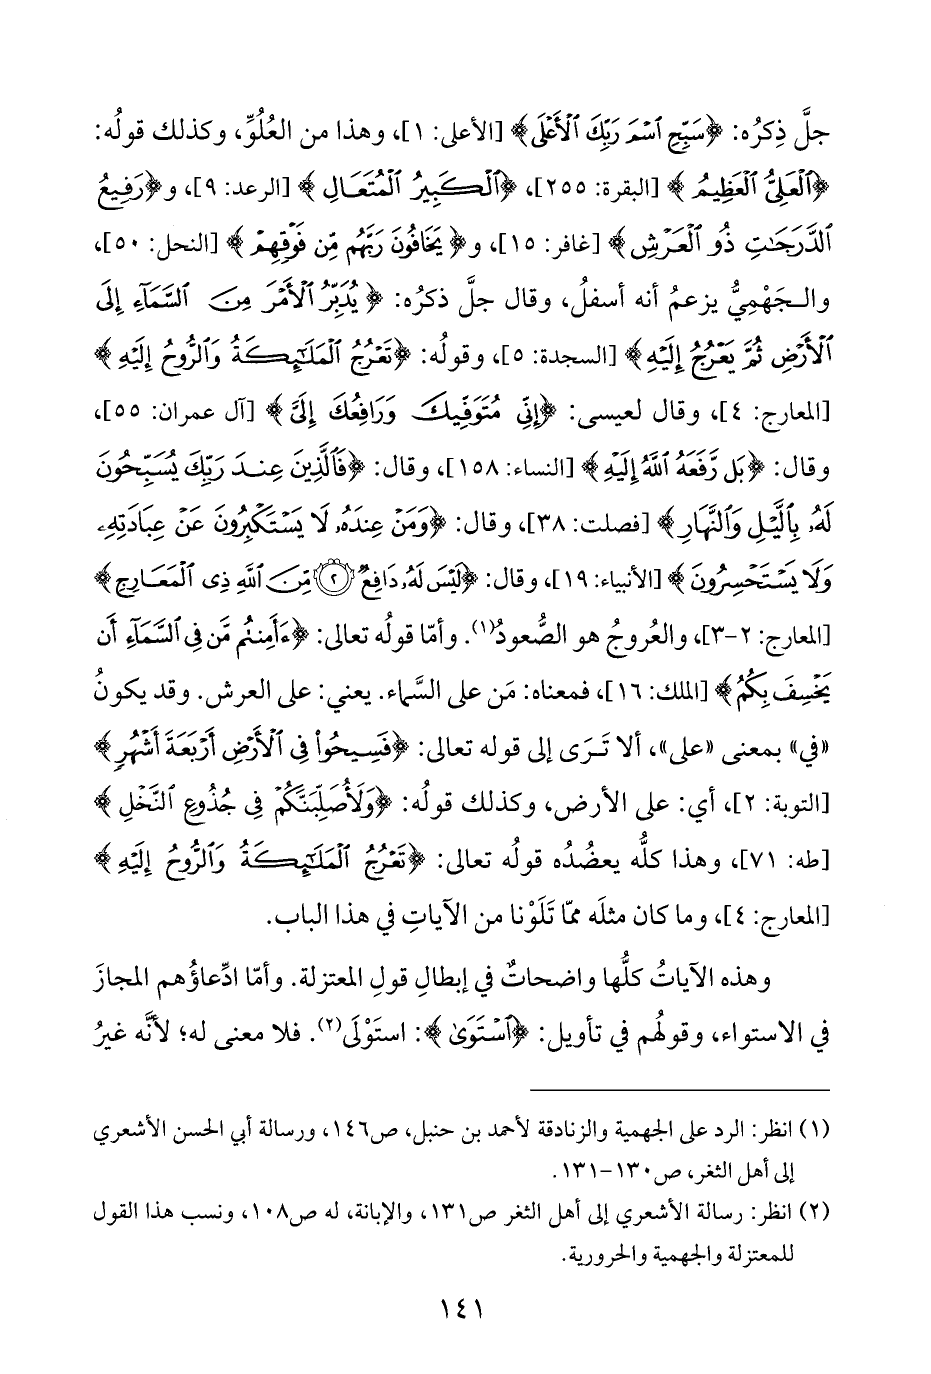 جلَّ ذِكرُه: ﴿سَبِّحِ ٱسْمَ رَبِّكَ ٱلْأَعْلَى﴾ [الأعلى: ١]، وهذا من العُلُوِّ، وكذلك قولُه:
﴿ٱلْعَلِىُّ ٱلْعَظِيمُ﴾ [البقرة: ٢٥٥]، ﴿ٱلْكَبِيرُ ٱلْمُتَعَالِ﴾ [الرعد: ٩]، و﴿رَفِيعُ
ٱلدَّرَجَـٰتِ ذُو ٱلْعَرْشِ﴾ [غافر: ١٥]، و﴿يَخَافُونَ رَبَّهُم مِّن فَوْقِهِمْ﴾ [النحل: ٥٠]،
والـجَهْمِيُّ يزعمُ أنه أسفلُ، وقال جلَّ ذكرُه: ﴿يُدَبِّرُ ٱلْأَمْرَ مِنَ ٱلسَّمَآءِ إِلَى
ٱلْأَرْضِ ثُمَّ يَعْرُجُ إِلَيْهِ﴾ [السجدة: ٥]، وقولُه: ﴿تَعْرُجُ ٱلْمَلَـٰٓئِكَةُ وَٱلرُّوحُ إِلَيْهِ﴾
[المعارج: ٤]، وقال لعيسى: ﴿إِنِّى مُتَوَفِّيكَ وَرَافِعُكَ إِلَىَّ﴾ [آل عمران: ٥٥]،
وقال: ﴿بَل رَّفَعَهُ ٱللَّهُ إِلَيْهِ﴾ [النساء: ١٥٨]، وقال: ﴿فَٱلَّذِينَ عِندَ رَبِّكَ يُسَبِّحُونَ
لَهُۥ بِٱلَّيْلِ وَٱلنَّهَارِ﴾ [فصلت: ٣٨]، وقال: ﴿وَمَنْ عِندَهُۥ لَا يَسْتَكْبِرُونَ عَنْ عِبَادَتِهِۦ
وَلَا يَسْتَحْسِرُونَ﴾ [الأنبياء: ١٩]، وقال: ﴿لَيْسَ لَهُۥ دَافِعٌ ۝٢ مِّنَ ٱللَّهِ ذِى ٱلْمَعَارِجِ﴾
[المعارج: ٢-٣]، والعُروجُ هو الصُّعودُ(١). وأمّا قولُه تعالى: ﴿ءَأَمِنتُم مَّن فِى ٱلسَّمَآءِ أَن
يَخْسِفَ بِكُمُ﴾ [الملك: ١٦]، فمعناه: مَن على السَّماء. يعني: على العرش. وقد يكونُ
«في» بمعنى «على»، ألا تَرَى إلى قوله تعالى: ﴿فَسِيحُوا۟ فِى ٱلْأَرْضِ أَرْبَعَةَ أَشْهُرٍ﴾
[التوبة: ٢]، أي: على الأرض، وكذلك قولُه: ﴿وَلَأُصَلِّبَنَّكُمْ فِى جُذُوعِ ٱلنَّخْلِ﴾
[طه: ٧١]، وهذا كلُّه يعضُدُه قولُه تعالى: ﴿تَعْرُجُ ٱلْمَلَـٰٓئِكَةُ وَٱلرُّوحُ إِلَيْهِ﴾
[المعارج: ٤]، وما كان مثلَه ممّا تَلَوْنا من الآياتِ في هذا الباب.
وهذه الآياتُ كلُّها واضحاتٌ في إبطالِ قولِ المعتزلة. وأمّا ادِّعاؤُهم المجازَ
في الاستواء، وقولُهم في تأويل: ﴿ٱسْتَوَىٰ﴾: استَوْلَى(٢). فلا معنى له؛ لأنَّه غيرُ
(١) انظر: الرد على الجهمية والزنادقة لأحمد بن حنبل، ص١٤٦، ورسالة أبي الحسن الأشعري
إلى أهل الثغر، ص١٣٠-١٣١.
(٢) انظر: رسالة الأشعري إلى أهل الثغر ص١٣١، والإبانة، له ص١٠٨، ونسب هذا القول
للمعتزلة والجهمية والحرورية.
١٤١